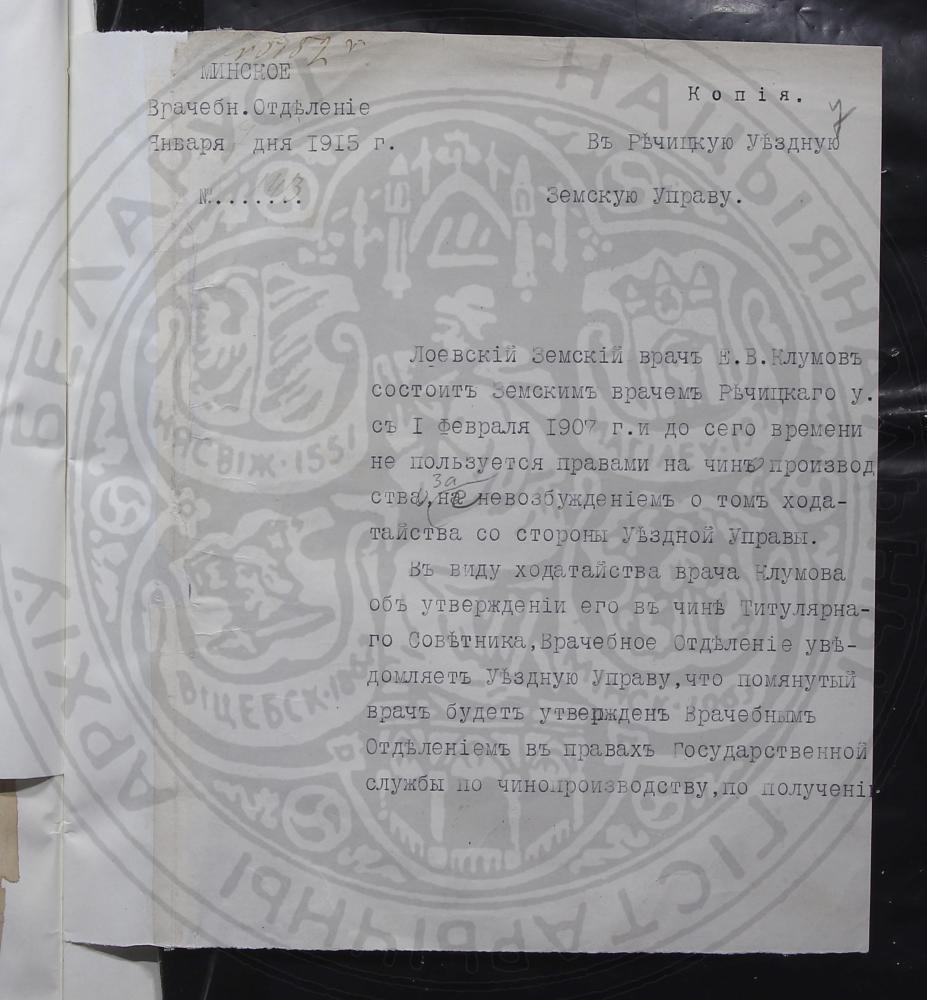 МИНСКОЕ
Врачебн.Отдѣленіе
Января дня 1915 г.
№.......
143
Копія.
7
Въ Рѣчицкую Уѣздную
Земскую Управу.
Лоевскій Земскій врачъ Е.В.Клумовъ
состоитъ Земскимъ врачемъ Рѣчицкаго у.
съ I Февраля 1907 г.и до сего времени
не пользуется правами на чинъ производ
за
ства, на невозбужденіемъ о томъ хода-
тайства со стороны Уѣздной Управы.
Въ виду ходатайства врача Клумова
объ утвержденіи его въ чинѣ Титулярна-
го Совѣтника,Врачебное Отдѣленіе увѣ-
домляетъ Уѣздную Управу,что помянутый
врачъ будетъ утвержденъ Врачебнымъ
Отдѣленіемъ въ правахъ Государственной
службы по чинопроизводству,по полученіи
НАЦЫЯНАЛЬНЫ ГІСТАРЫЧНЫ АРХІЎ БЕЛАРУСІ
НЯСВІЖ·1551
ВІЦЕБСК·18